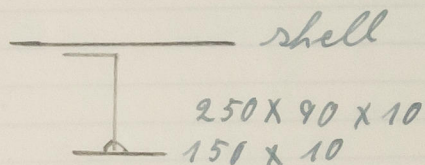 shell
250 x 90 x 10
150 x 10